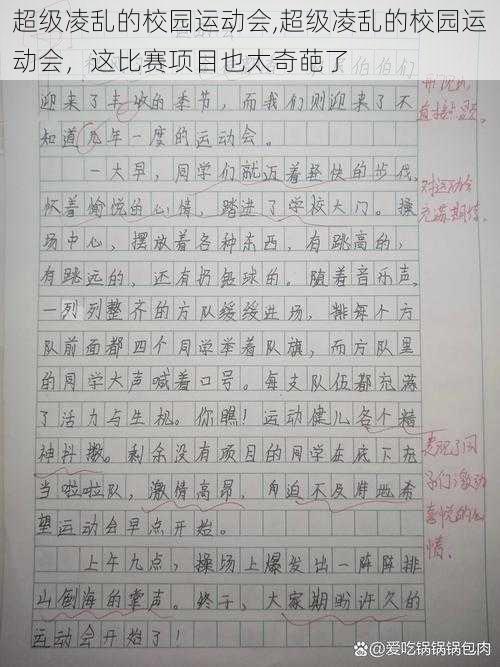 超级凌乱的校园运动会,超级凌乱的校园运
动会，这比赛项目也太奇葩了
伯伯们
迎来了丰收的季节，而我们则迎来了不
知道几年一度的运动会。
一大早，同学们就迈着轻快的步伐，
怀着愉悦的心情，踏进了学校大门。操
场中心，摆放着各种东西，有跳高的，
有跳远的，还有扔铅球的。随着音乐声，
一列列整齐的方队缓缓进场，排每个方
队前面都四个同学举着队旗，而方队里
的同学大声喊着口号。每支队伍都充满
了活力与生机。你瞧！运动健儿各个精
神抖擞。剩余没有项目的同学在底下充
当啦啦队，激情高昂，迫不及待地希
望运动会早点开始。
上午九点，操场上爆发出一阵阵排
山倒海的掌声。终于，大家期盼许久的
运动会开始了！
对运动会
充满期待。
表现了同
学们激动
喜悦的心
情。
头条@爱吃锅锅锅包肉